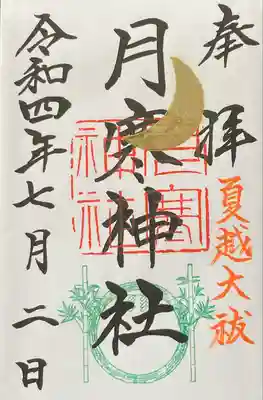 奉拝
夏越大祓
月寒神社
月寒神社
令和四年七月二日